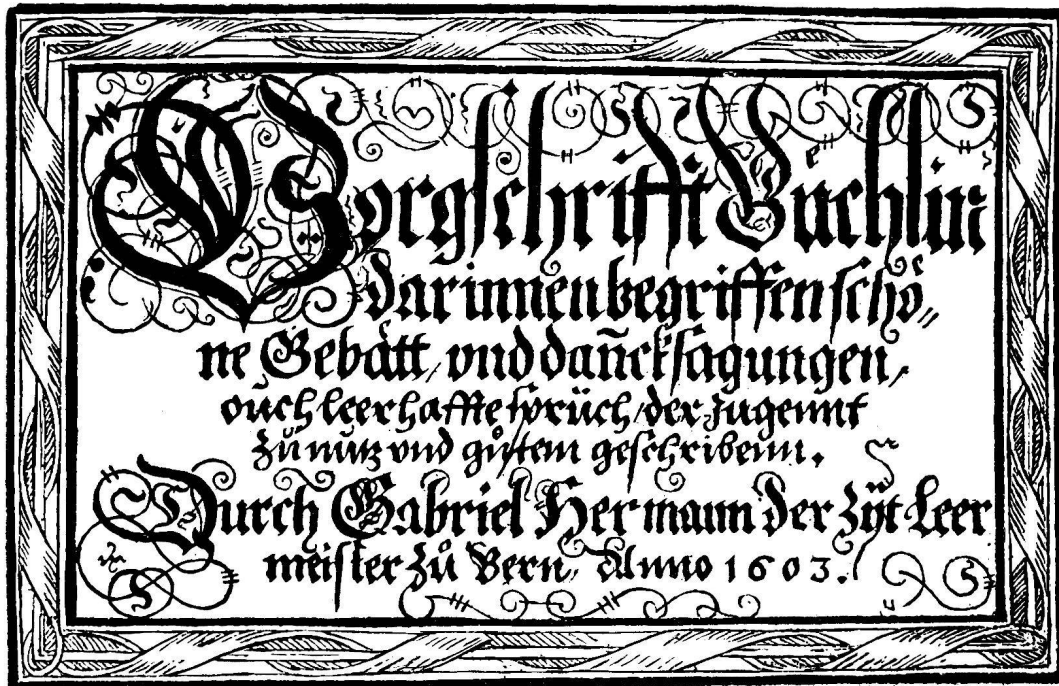 Vorgschrifft Büchlin
darinnen begriffen schö„
ne Gebätt, vnd dañcksagungen,
ouch leerhaffte sprüch, der Jugennt
zů nutz vnd gůttem geschribenn.
Durch Gabriel Hermann der Zÿt Leer
meister zů Bern„ Anno 1603.